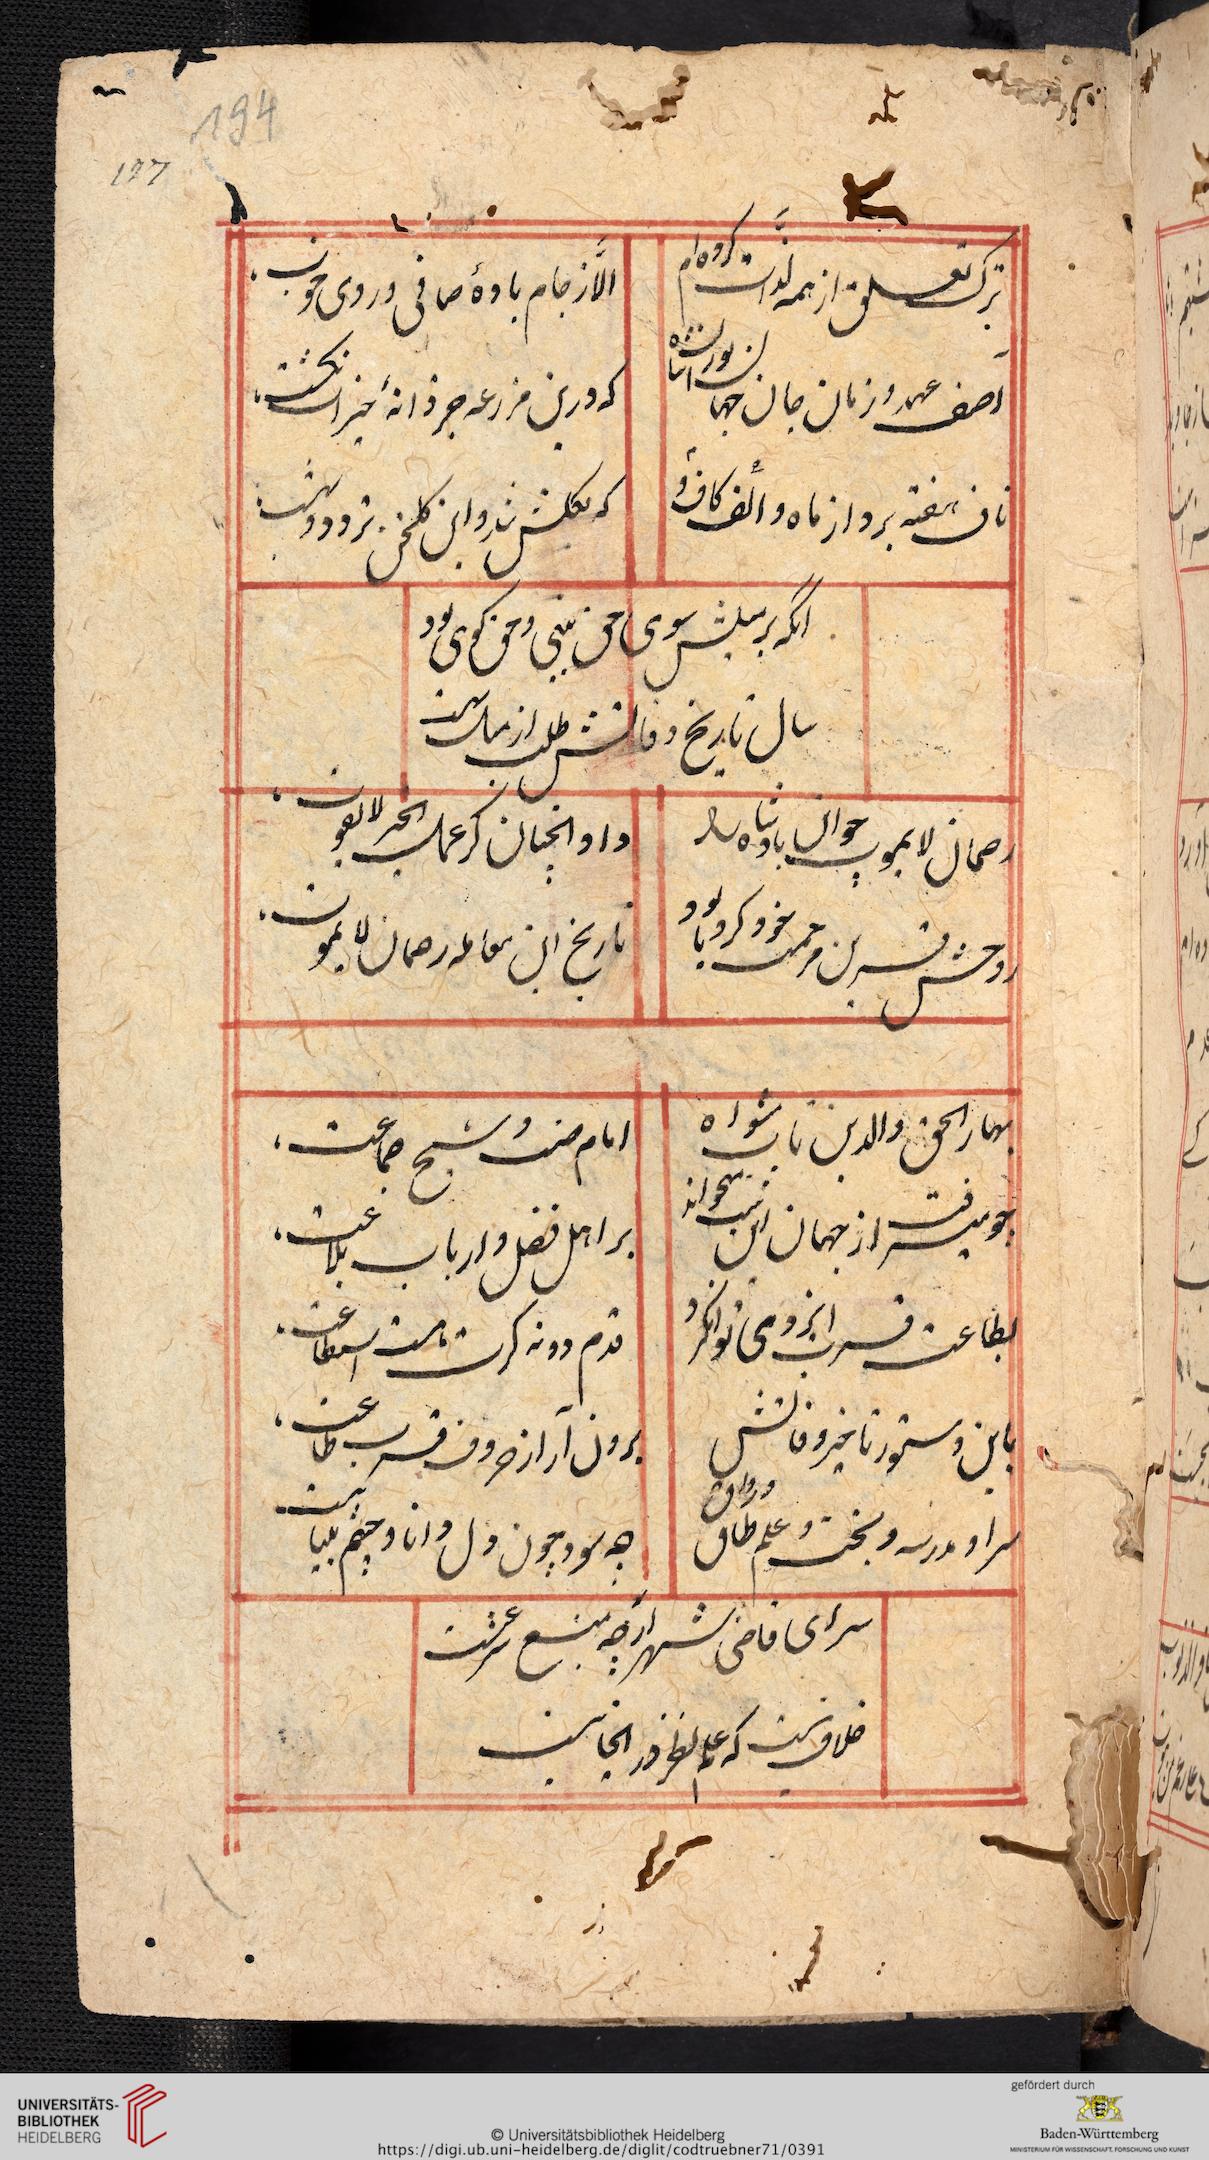 194
197
ترک تعلق از همه لذات کرده‌ام
الّا ز جام بادهٔ صافی و روی خوب
آصف عهد و زمان جان جهان تورانشاه
که درین مزرعه جز دانهٔ خیرات نکشت
ناف هفته بد و از ماه و الف کاف و
که بگلشن شد و این گلخن پر دود بهشت
انگه میلش سوی حق بینی و حق گوی بود
سال تاریخ وفاتش طلب از میل بهشت
رحمان لا یموت چو آن پادشاه را
داد انچنان کز عمل الخیر لا یفوت
روحش قرین رحمت خود کرد تا بود
تاریخ این معامله رحمان لا یموت
بهاء الحق والدین طاب مثواه
امام سنت و شیخ جماعت
چو میرفت از جهان این بیت میخواند
بر اهل فضل و ارباب بلاغت
بطاعت قرب ایزدی توان کرد
قدم در نه گرت هست استطاعت
باین دستور تاریخ وفاتش
برون آر از حروف قرب طاعت
سرا و مدرسه و بحث و علم و طاق و رواق
چه سود چون دل دانا و چشم بینا نیست
سرای قاضی شهر ارچه منبع
خلاف نیست که علم نظر در انجا نیست
UNIVERSITÄTS-
BIBLIOTHEK
HEIDELBERG
© Universitätsbibliothek Heidelberg
https://digi.ub.uni-heidelberg.de/diglit/codtruebner71/0391
gefördert durch
Baden-Württemberg
MINISTERIUM FÜR WISSENSCHAFT, FORSCHUNG UND KUNST